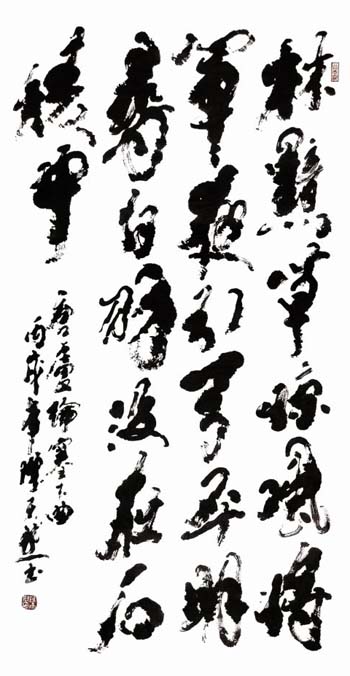 林黯草惊風將
軍夜引弓平明
尋白羽没在石
棱中
唐盧綸塞下曲
丙戌年書